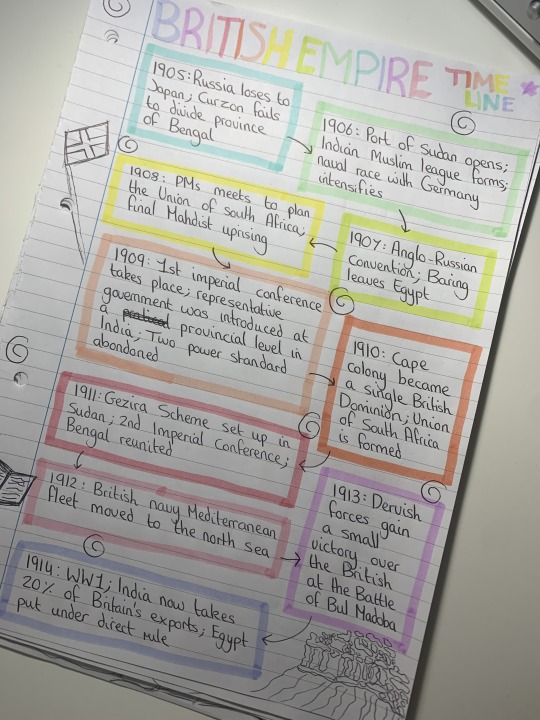 BRITISH EMPIRE TIME
LINE
1905: Russia loses to
Japan; Curzon fails
to divide province
of Bengal
1906: Port of Sudan opens;
Indian Muslim league forms;
naval race with Germany
intensifies
1907: Anglo-Russian
Convention; Baring
leaves Egypt
1908: PMs meets to plan
the Union of south Africa;
final Mahdist uprising
1909: 1st imperial conference
takes place; representative
government was introduced at
a provincial level in
India; Two power standard
abandoned
1910: Cape
colony became
a single British
Dominion; Union
of South Africa
is formed
1911: Gezira Scheme set up in
Sudan; 2nd Imperial Conference;
Bengal reunited
1912: British navy Mediterranean
fleet moved to the north sea
1913: Dervish
forces gain
a small
victory over
the British
at the Battle
of Bul Madoba
1914: WW1; India now takes
20% of Britain's exports; Egypt
put under direct rule